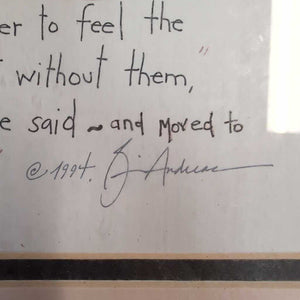 er to feel the
without them,"
e said ~ and moved to
"
© 1994. Brian Andreas